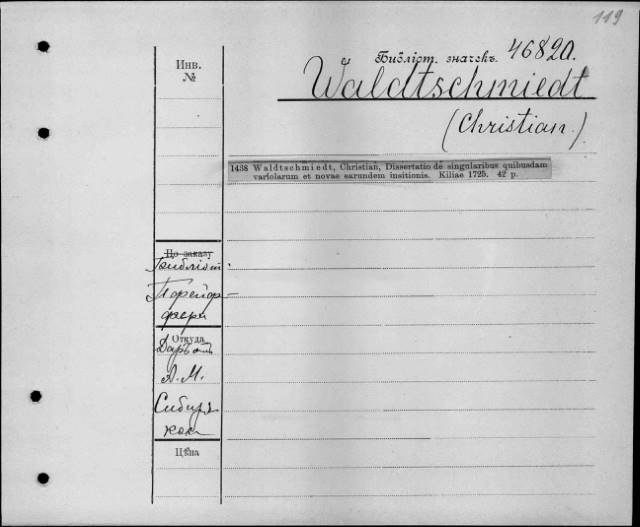 119
Инв.
№
Библіот. значекъ. 46820.
Waldtschmiedt
(Christian.)
1438 Waldtschmiedt, Christian, Dissertatio de singularibus quibusdam
variolarum et novae earundem insitionis. Kiliae 1725. 42 p.
По заказу
Библіот.
Порейор-
фери
Откуда
Даръ отъ
А. М.
Сибиря
кова
Цѣна